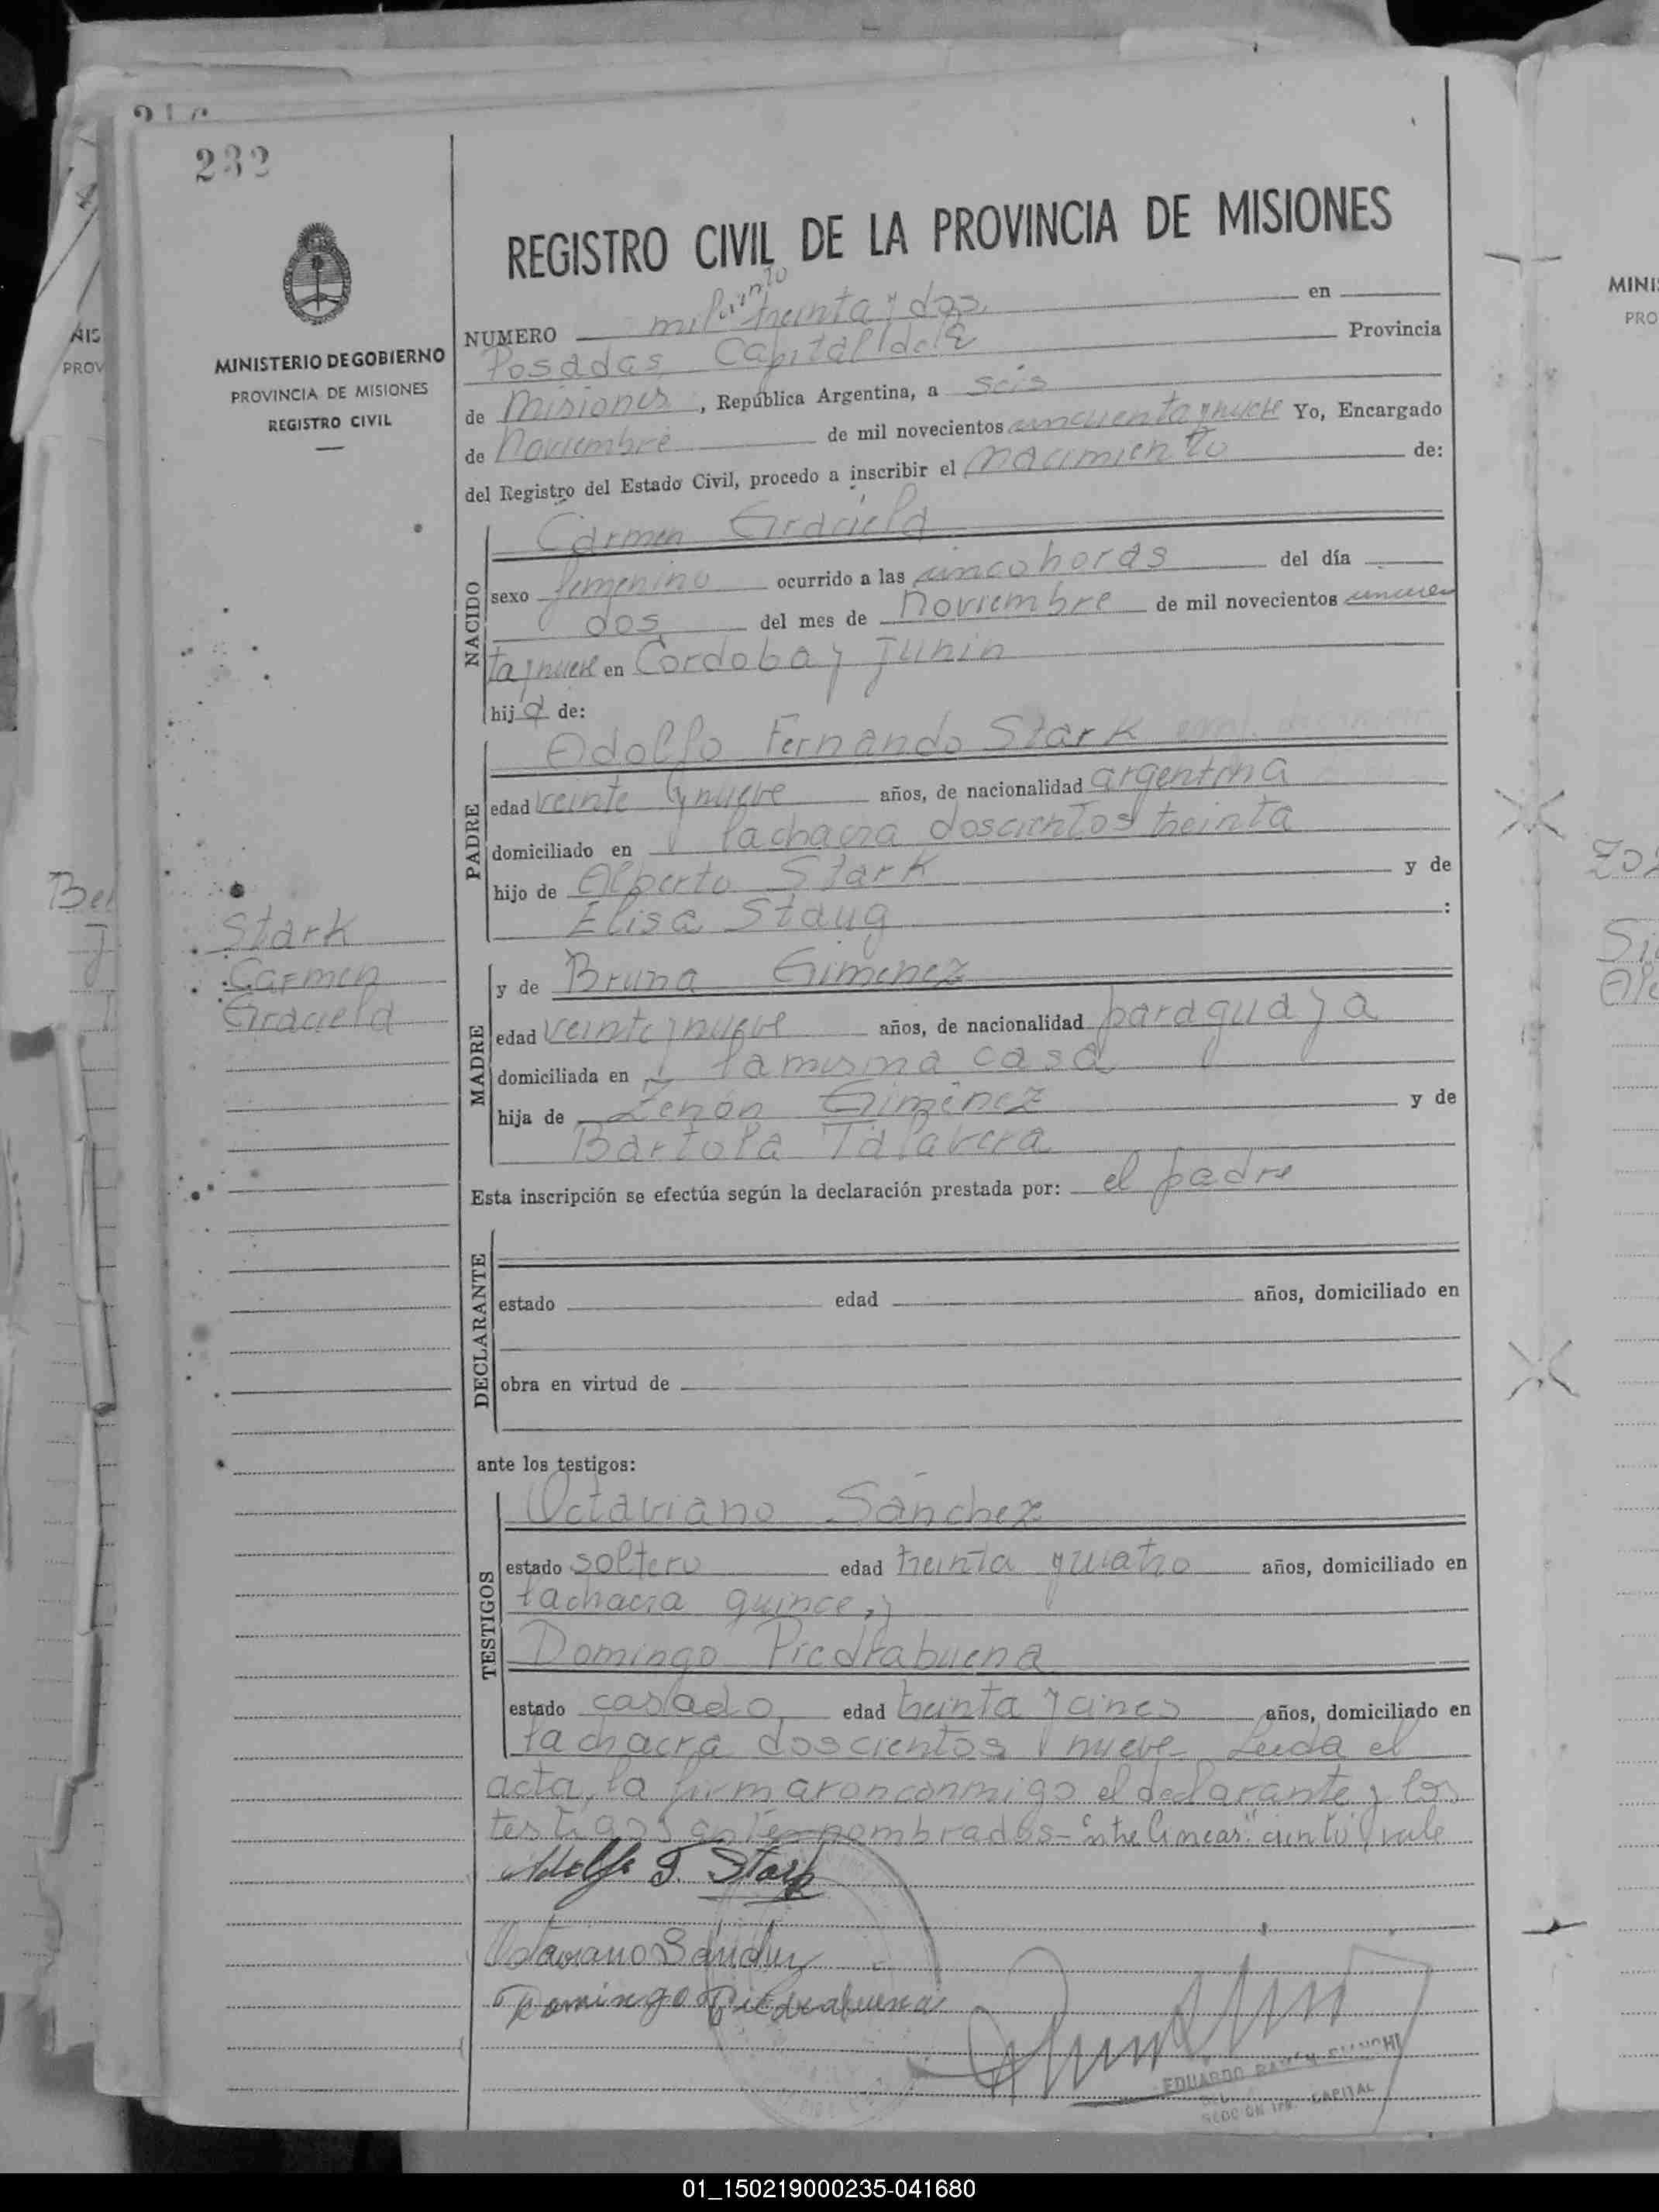 232
MINISTERIO DE GOBIERNO
PROVINCIA DE MISIONES
REGISTRO CIVIL
Stark
Carmen
Graciela
REGISTRO CIVIL DE LA PROVINCIA DE MISIONES
ciento
NUMERO mil treinta y dos en
Posadas, Capital de la Provincia
de Misiones, República Argentina, a seis
de Noviembre de mil novecientos cincuenta y nueve Yo, Encargado
del Registro del Estado Civil, procedo a inscribir el nacimiento de:
NACIDO
Carmen Graciela
sexo femenino ocurrido a las cinco horas del día
dos del mes de noviembre de mil novecientos cincuen
ta y nueve en Cordoba y Junin
hija de:
PADRE
Adolfo Fernando Stark
edad veinte y nueve años, de nacionalidad argentina
domiciliado en la chacra doscientos treinta
hijo de Alberto Stark y de
Elisa Staug :
MADRE
y de Bruna Gimenez
edad veinte y nueve años, de nacionalidad paraguaya
domiciliada en la misma casa
hija de Zenón Giménez y de
Bartola Talavera
Esta inscripción se efectúa según la declaración prestada por: el padre
DECLARANTE
estado edad años, domiciliado en
obra en virtud de
ante los testigos:
TESTIGOS
Octaviano Sánchez
estado soltero edad treinta y cuatro años, domiciliado en
la chacra quince, y
Domingo Piedrabuena
estado casado edad treinta y cinco años, domiciliado en
la chacra doscientos nueve Leida el
acta, la firmaron conmigo el declarante y los
testigos antes nombrados - "entre lineas": ciento, vale
Adolfo F. Stark
Octaviano Sánchez
Domingo Piedrabuena
EDUARDO RAMON BIANCHI
CAPITAL
01_150219000235-041680